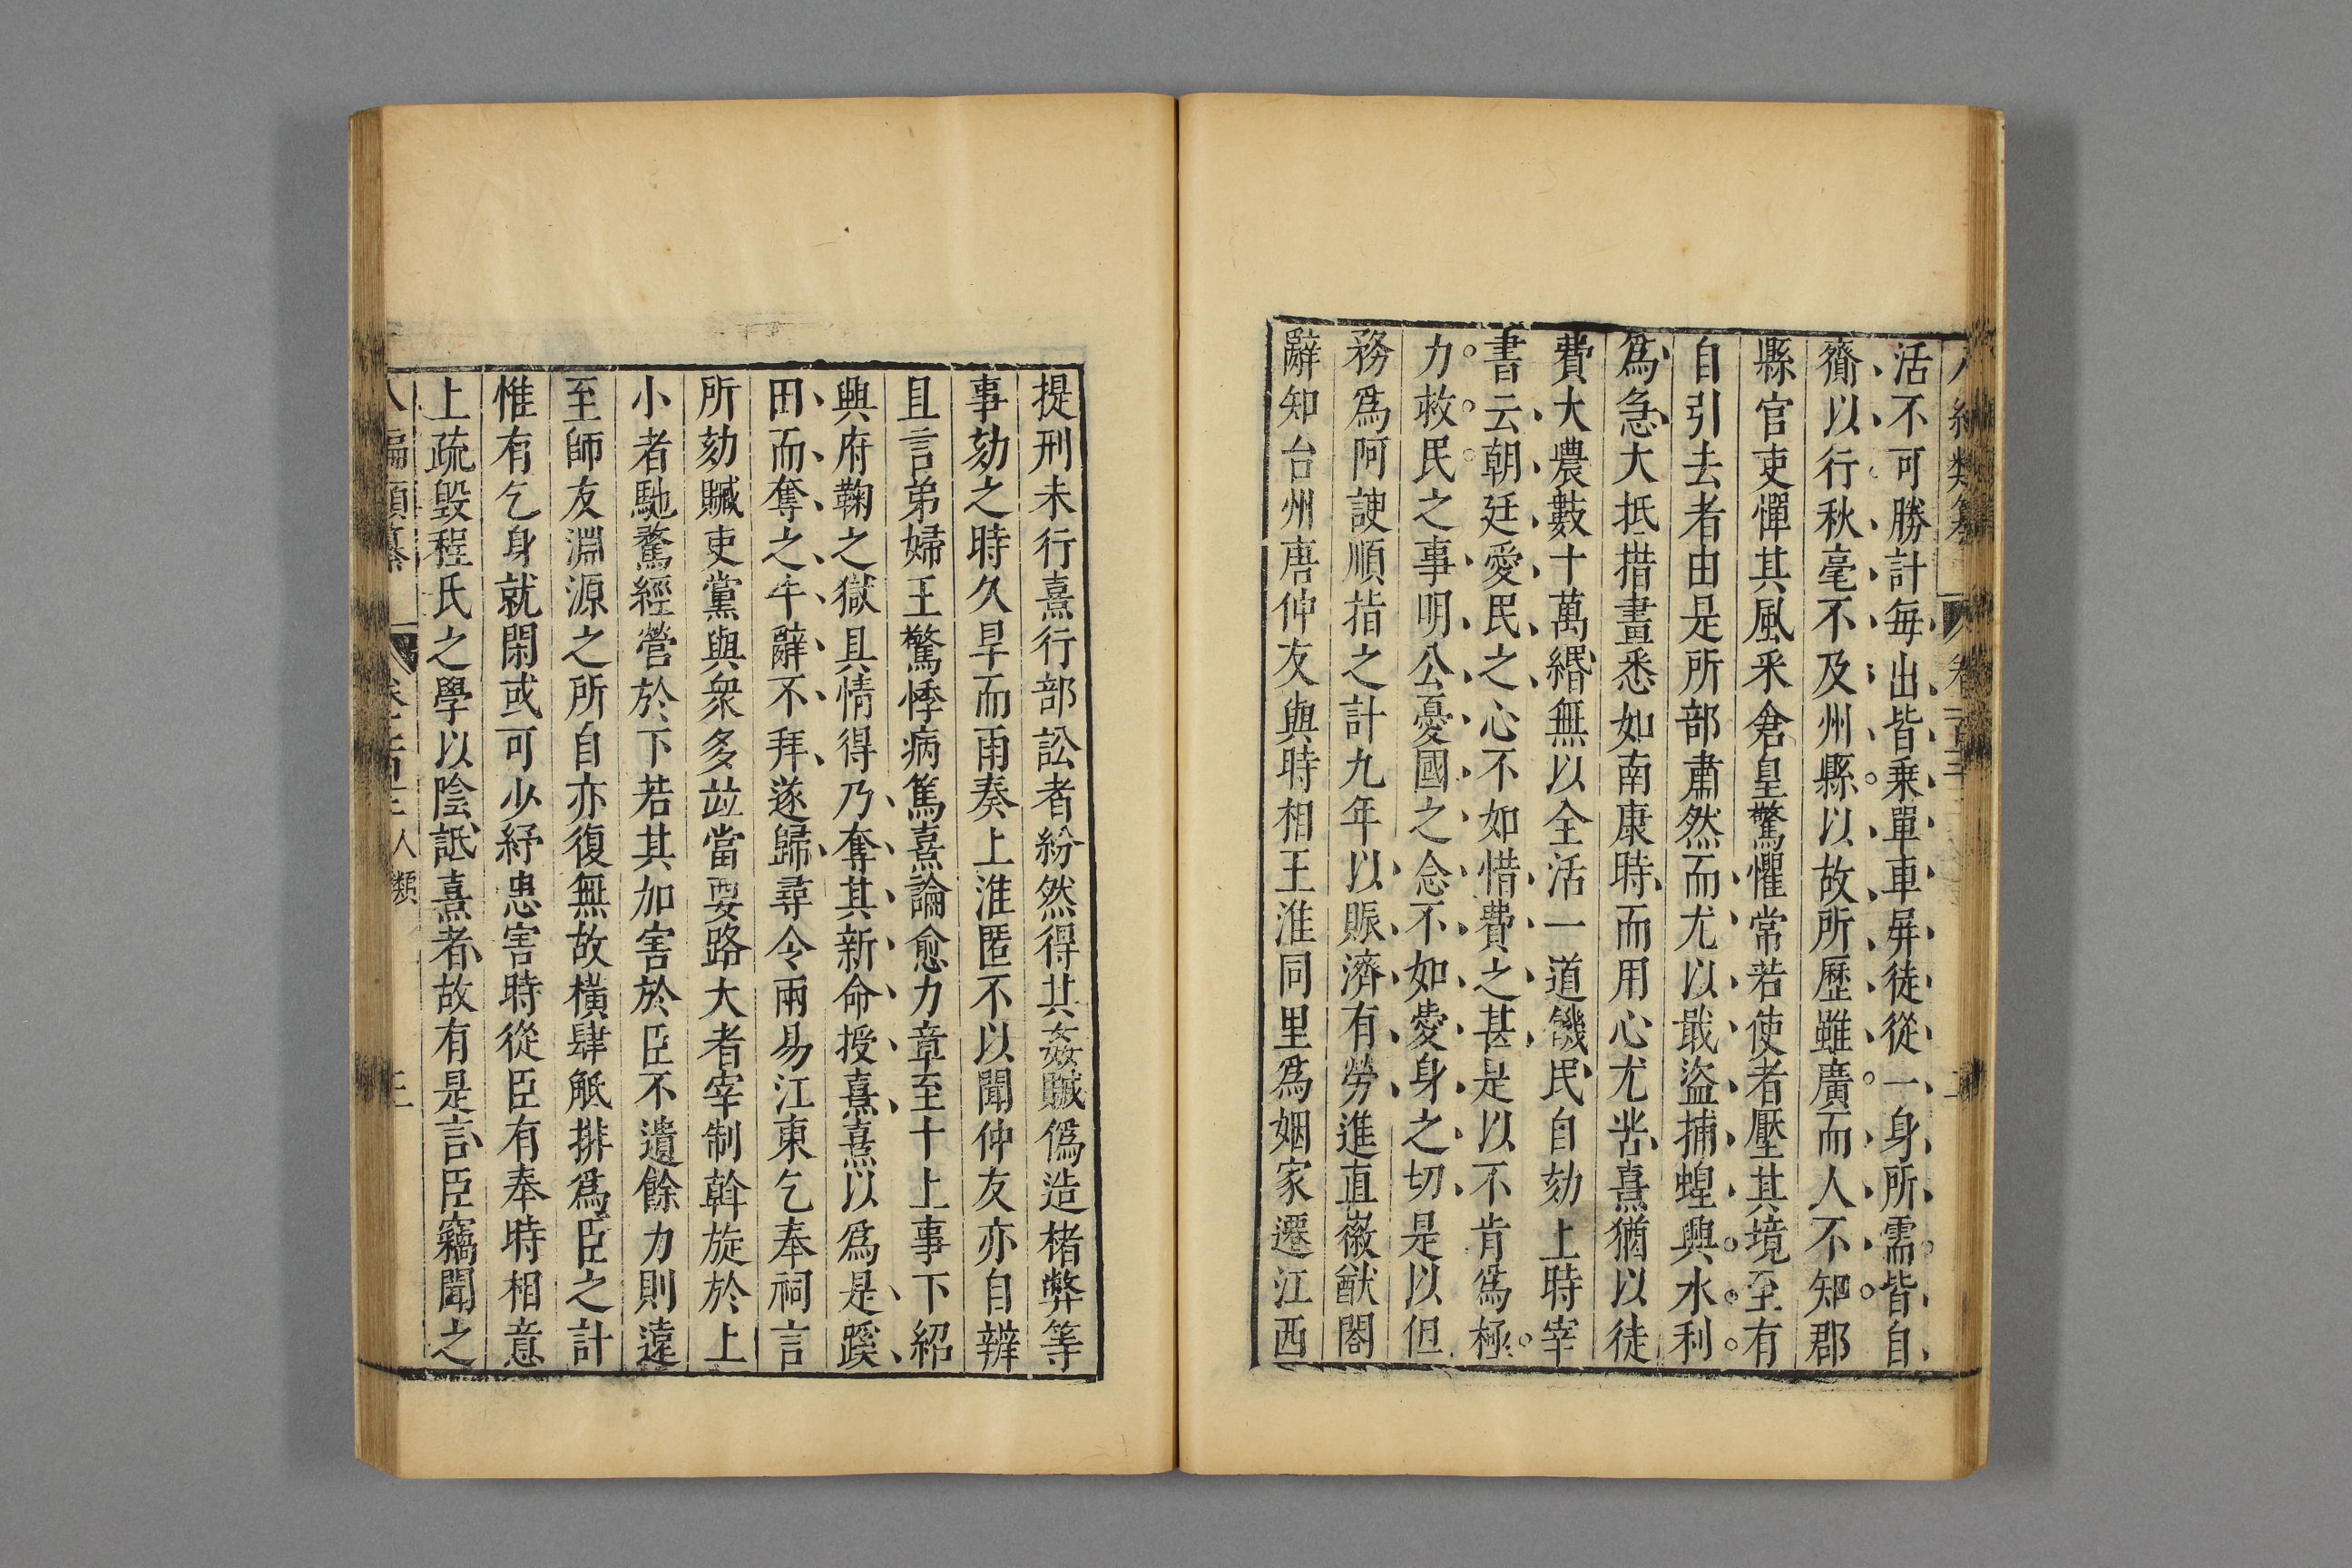 活不可勝計毎出皆乗單車屏徒從一身所需皆自
齎以行秋毫不及州縣以故所歷雖廣而人不知郡
縣官吏憚其風采倉皇驚懼常若使者壓其境至有
自引去者由是所部肅然而尤以戢盜捕蝗興水利
爲急大抵措畫悉如南康時而用心尤苦熹猶以徒
費大農數十萬緡無以全活一道饑民自劾上時宰
書云朝廷愛民之心不如惜費之甚是以不肯爲極
力救民之事明公憂國之念不如愛身之切是以但
務爲阿諛順指之計九年以賑濟有勞進直徽猷閣
辭知台州唐仲友與時相王淮同里爲姻家遷江西
提刑未行熹行部訟者紛然得其姦贓僞造楮弊等
事劾之時久旱而雨奏上淮匿不以聞仲友亦自辨
且言弟婦王驚悸病篤熹論愈力章至十上事下紹
興府鞠之獄具情得乃奪其新命授熹熹以爲是蹊
田而奪之牛辭不拜遂歸尋令兩易江東乞奉祠言
所劾贓吏黨與衆多竝當要路大者宰制斡旋於上
小者馳騖經營於下若其加害於臣不遺餘力則遠
至師友淵源之所自亦復無故橫肆觝排爲臣之計
惟有乞身就閑或可少紓患害時從臣有奉時相意
上疏毀程氏之學以陰詆熹者故有是言臣竊聞之